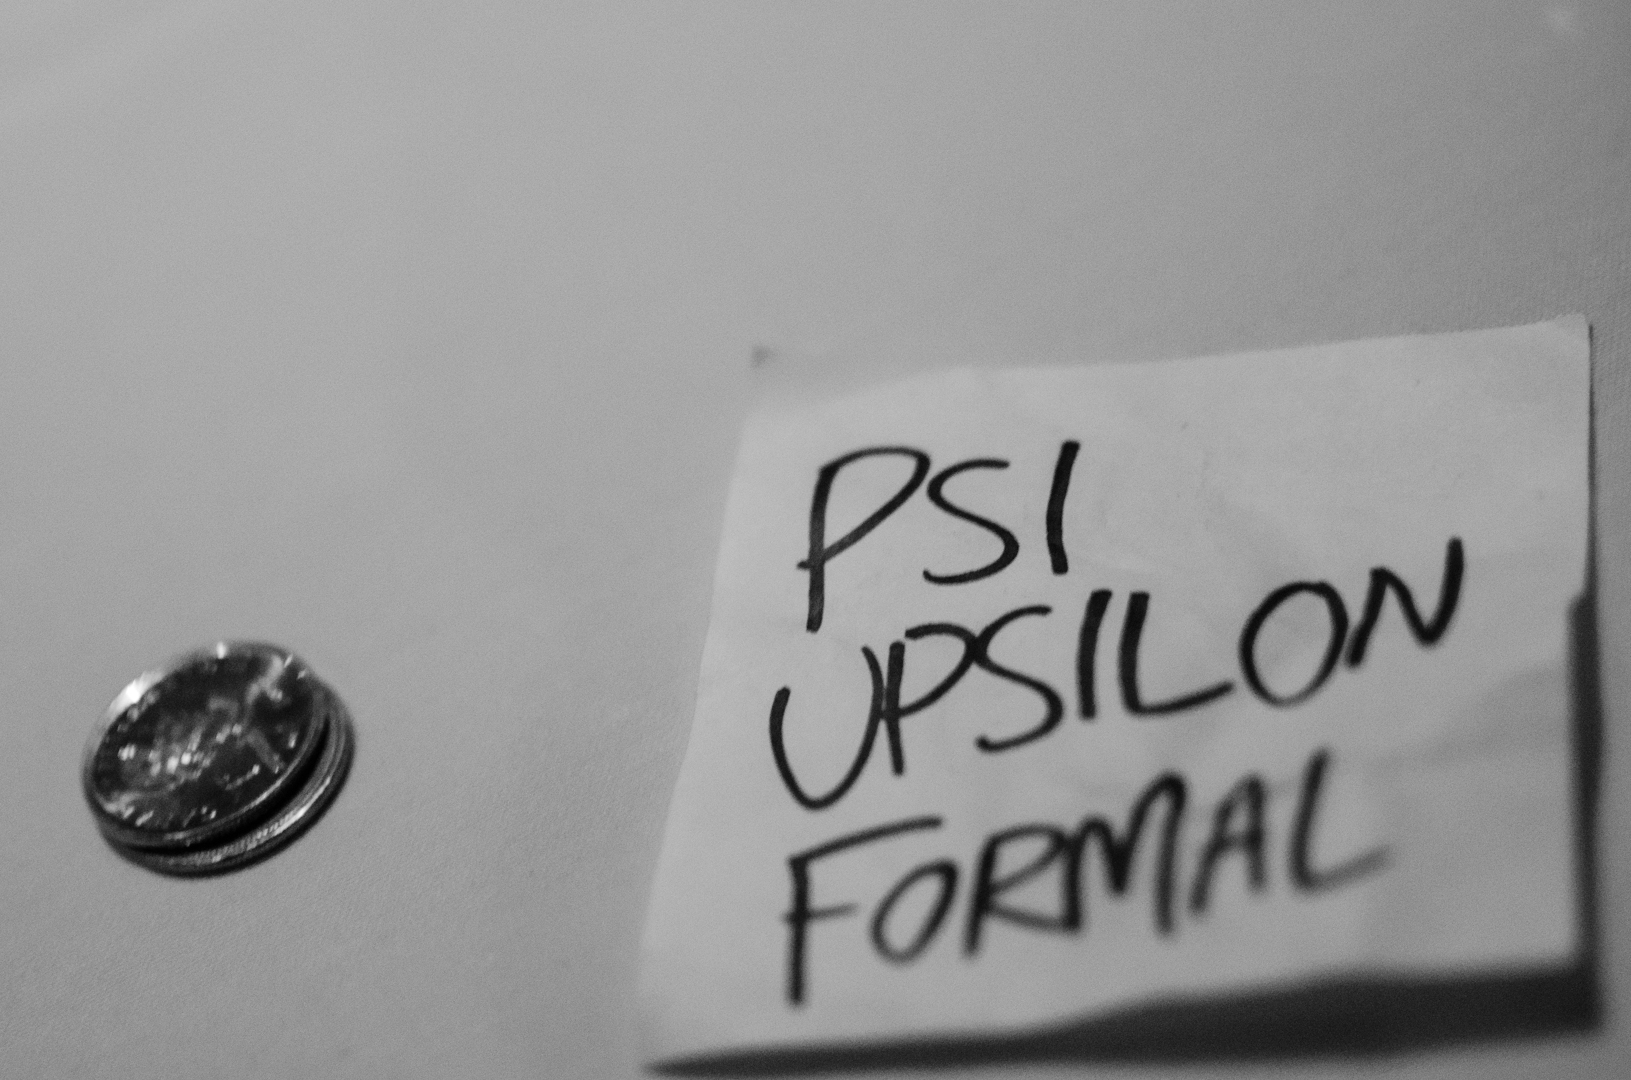 PSI
UPSILON
FORMAL